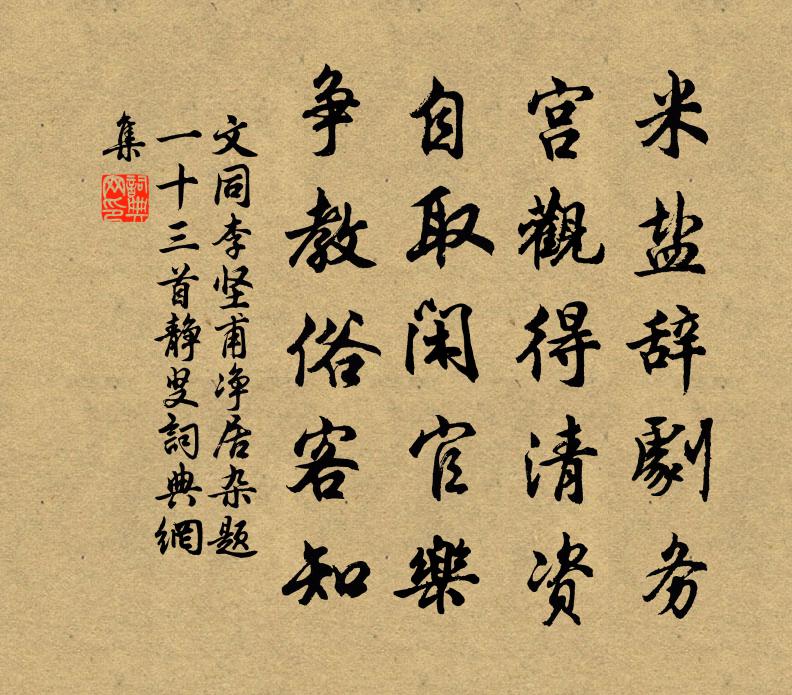 米盐辞劇务
宫觀得清资
自取闲官樂
争教俗客知
文同李坚甫净居杂题
一十三首静叟詞典網
集
詞典
网印